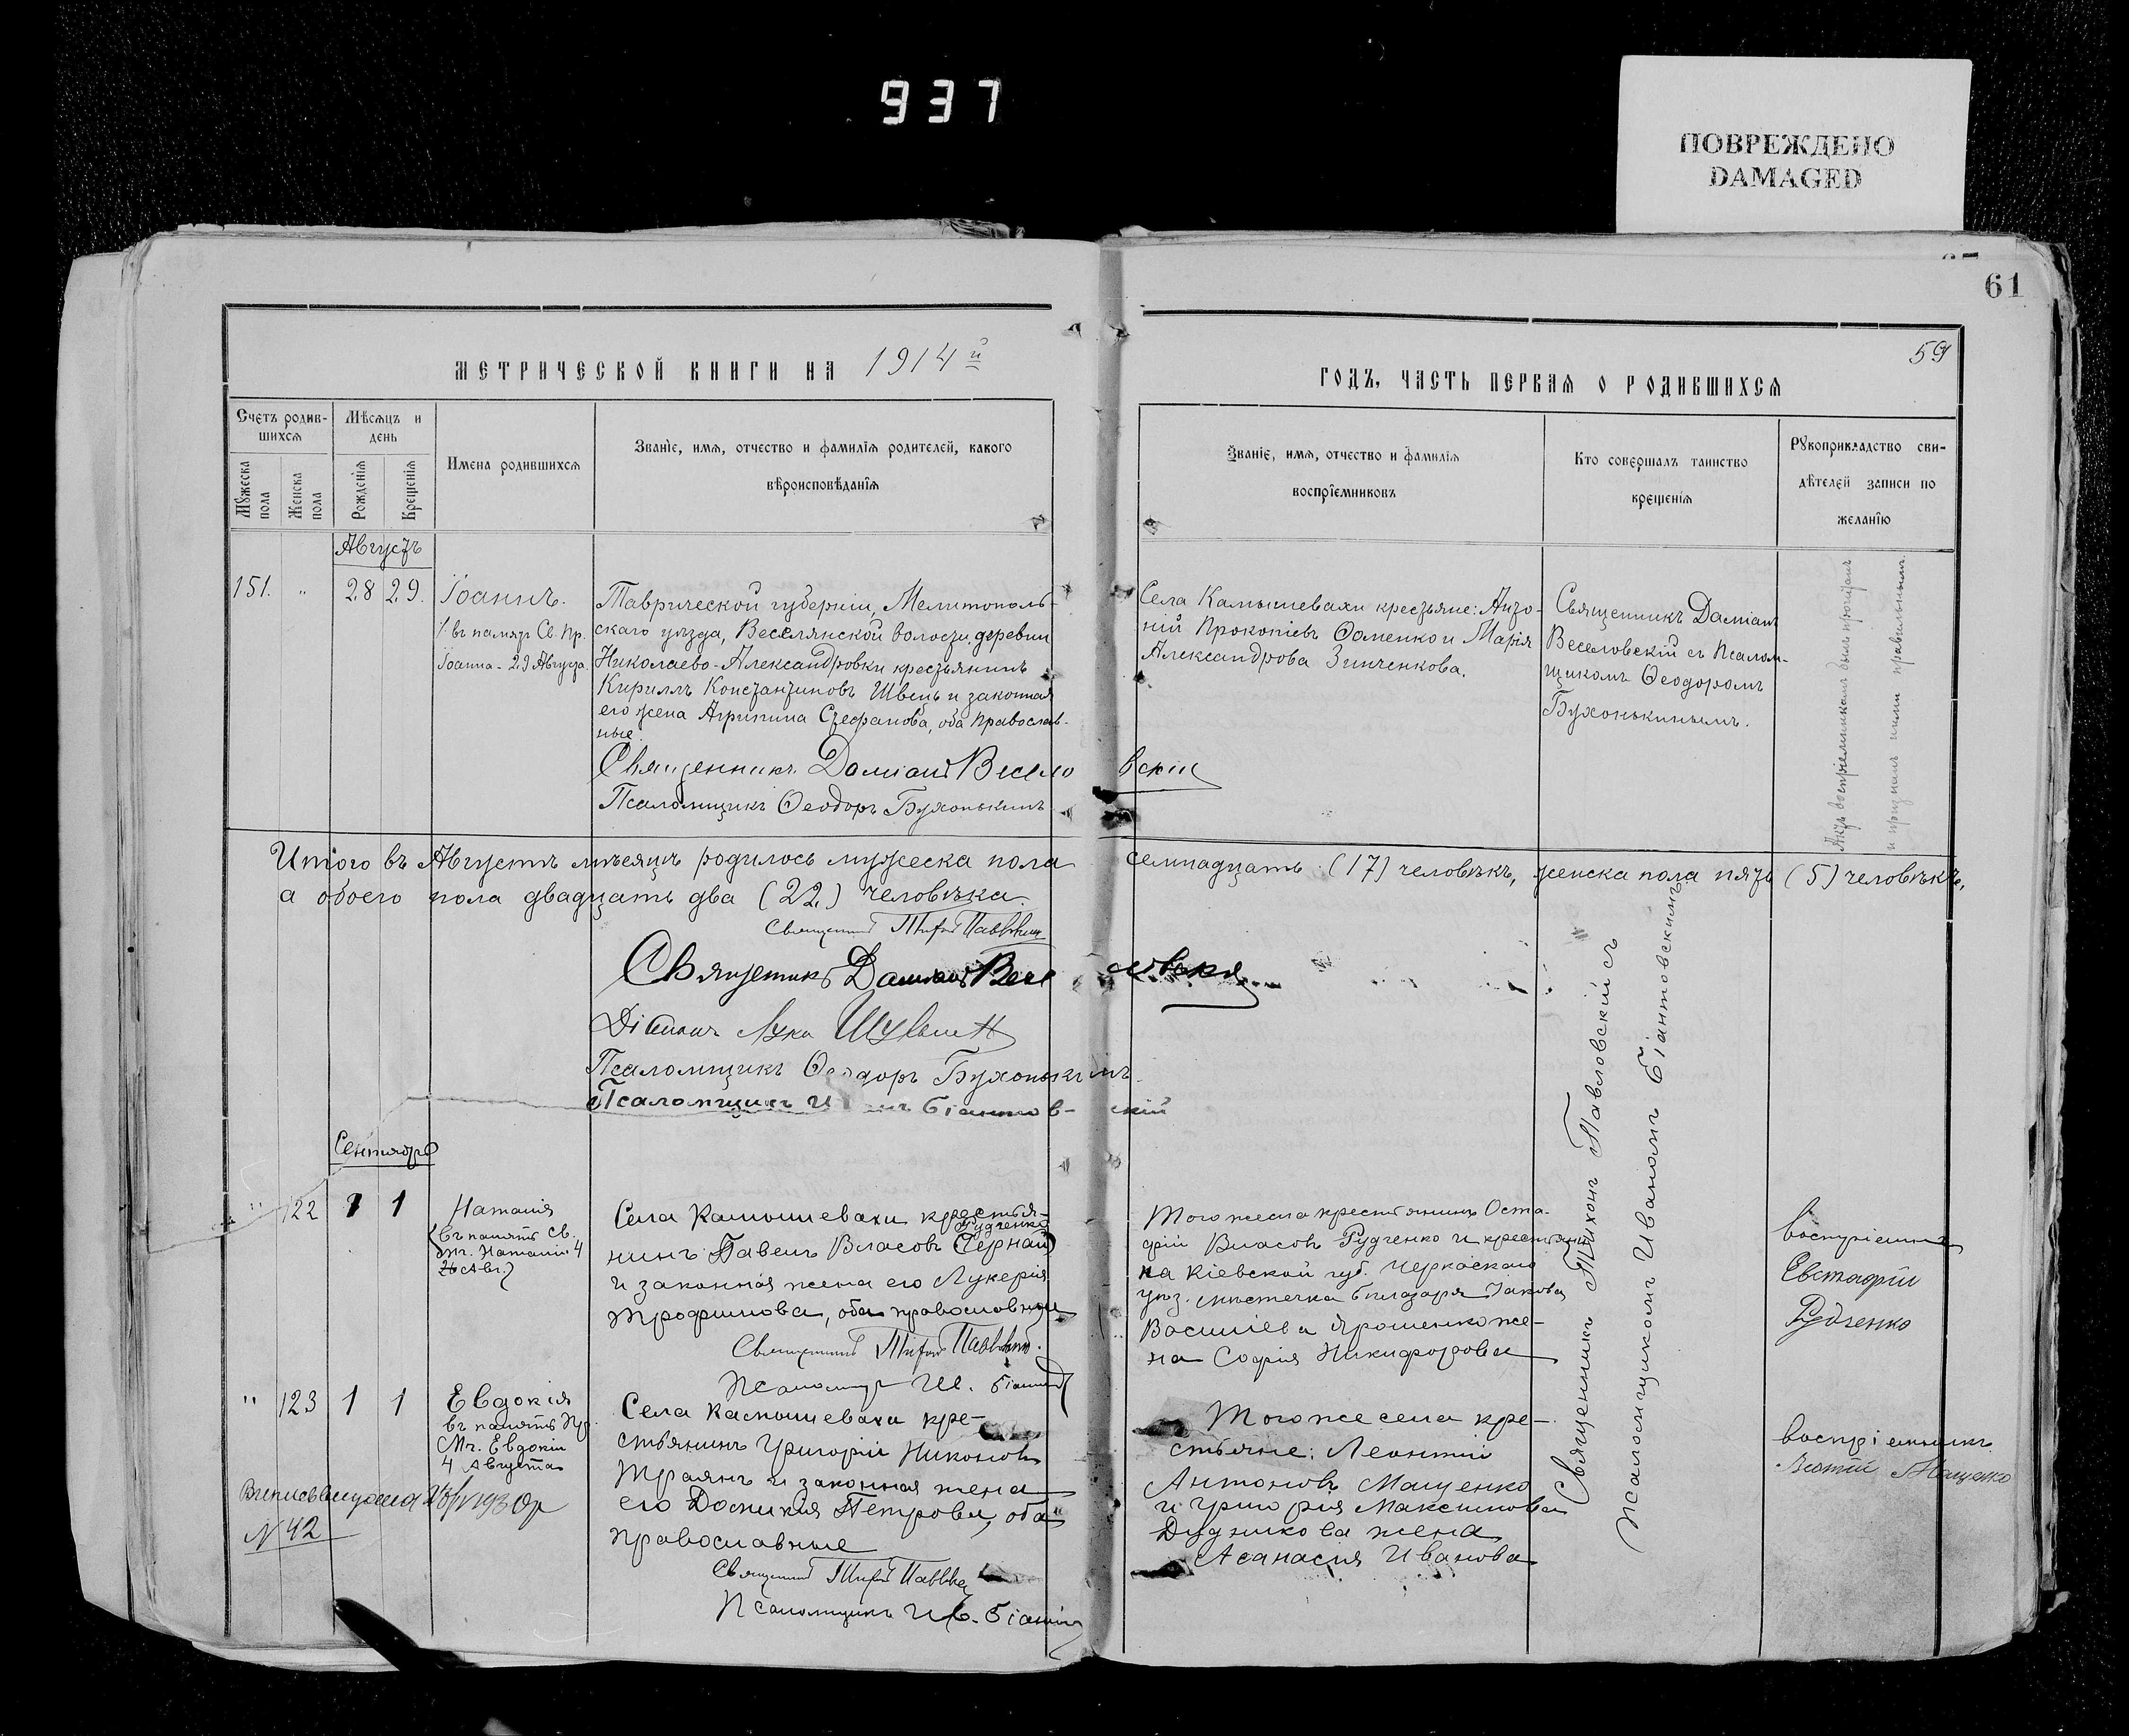 937
ПОВРЕЖДЕНО
DAMAGED
61
59
МЕТРИЧЕСКОЙ КНИГИ НА 1914й
ГОДЪ, ЧАСТЬ ПЕРВАЯ О РОДИВШИХСЯ
Счетъ родив-
шихся
Мужеска
пола
Женска
пола
Мѣсяцъ и
день
Рожденія
Крещенія
Имена родившихся
Званіе, имя, отчество и фамилія родителей, какого
вѣроисповѣданія
Званіе, имя, отчество и фамилія
воспріемниковъ
Кто совершалъ таинство
крещенія
Рукоприкладство сви-
дѣтелей записи по
желанію
Августъ
151. " 28 29.
Іоаннъ.
въ память Св. Пр.
Іоанна - 29 Августа
Таврической губерніи, Мелитополь-
скаго уѣзда, Веселянской волости, деревни
Николаево-Александровки крестьянинъ
Кириллъ Константиновъ Швецъ и законная
его жена Агрипина Стефанова, оба православ-
ные.
Священникъ Даміанъ Веселовскій
Псаломщикъ Ѳеодоръ Бухонькинъ
Села Камышевахи крестьяне: Анто-
ній Прокопіевъ Ѳоменко и Марія
Александрова Зинченкова.
Священникъ Даміанъ
Веселовскій съ Псалом-
щикомъ Ѳеодоромъ
Бухонькинымъ.
Актъ воспріемникамъ былъ прочитанъ
и признанъ ими правильнымъ.
Итого въ Августѣ мѣсяцѣ родилось мужеска пола семнадцать (17) человѣкъ, женска пола пять (5) человѣкъ,
а обоего пола двадцать два (22) человѣка.
Священникъ
Священникъ Даміанъ Веселовскій
Діаконъ Лука
Псаломщикъ Ѳеодоръ Бухонькинъ.
Псаломщикъ Иванъ Біантовскій
Сентябрь
" 122 1 1
Наталія
(въ память Св.
мч. Наталіи 4
26 Авг.)
Села Камышевахи крестья-
Рудченко
нинъ Павелъ Власовъ (Чернай)
и законная жена его Лукерія
Трофимова, оба православные
Священникъ
Псаломщ. И. Біантов
Того же села крестьянинъ Оста-
фій Власовъ Рудченко и крестьян
ка Кіевской губ. Черкаскаго
уѣз. мѣстечка Билазаря Іакова
Василіева Ярошенко же-
на Софія Никифорова
воспріемникъ
Евстафій
Рудченко
Священникъ Тихонъ Павловскій съ
Псаломщикомъ Иваномъ Біантовскимъ
" 123 1 1
Евдокія
въ память Пр.
Мч. Евдокіи
4 Августа
Села Камышевахи кре-
стьянинъ Григорій Никоновъ
Траянъ и законная жена
его Домикія Петрова, оба
православные
Священникъ
Псаломщикъ Ив. Біантов
Того же села кре-
стьяне: Леонтій
Антоновъ Мащенко
и Григорія Максимова
Дудникова жена
Аѳанасія Иванова
воспріемникъ
Леонтій Мащенко
N 42